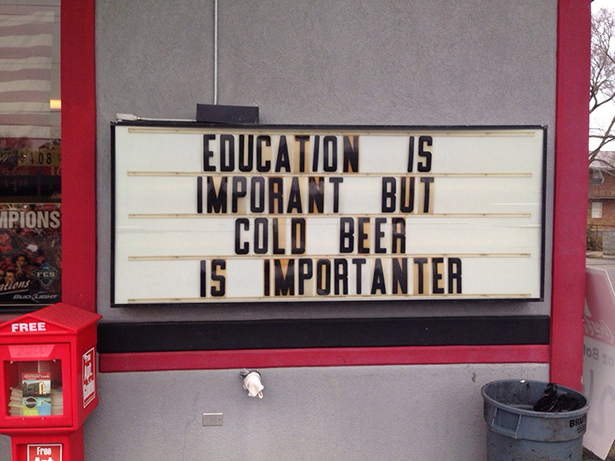 EDUCATION IS
IMPORANT BUT
COLD BEER
IS IMPORTANTER
MPIONS
FCS
BUD LIGHT
FREE
Apt.
Free
BRU